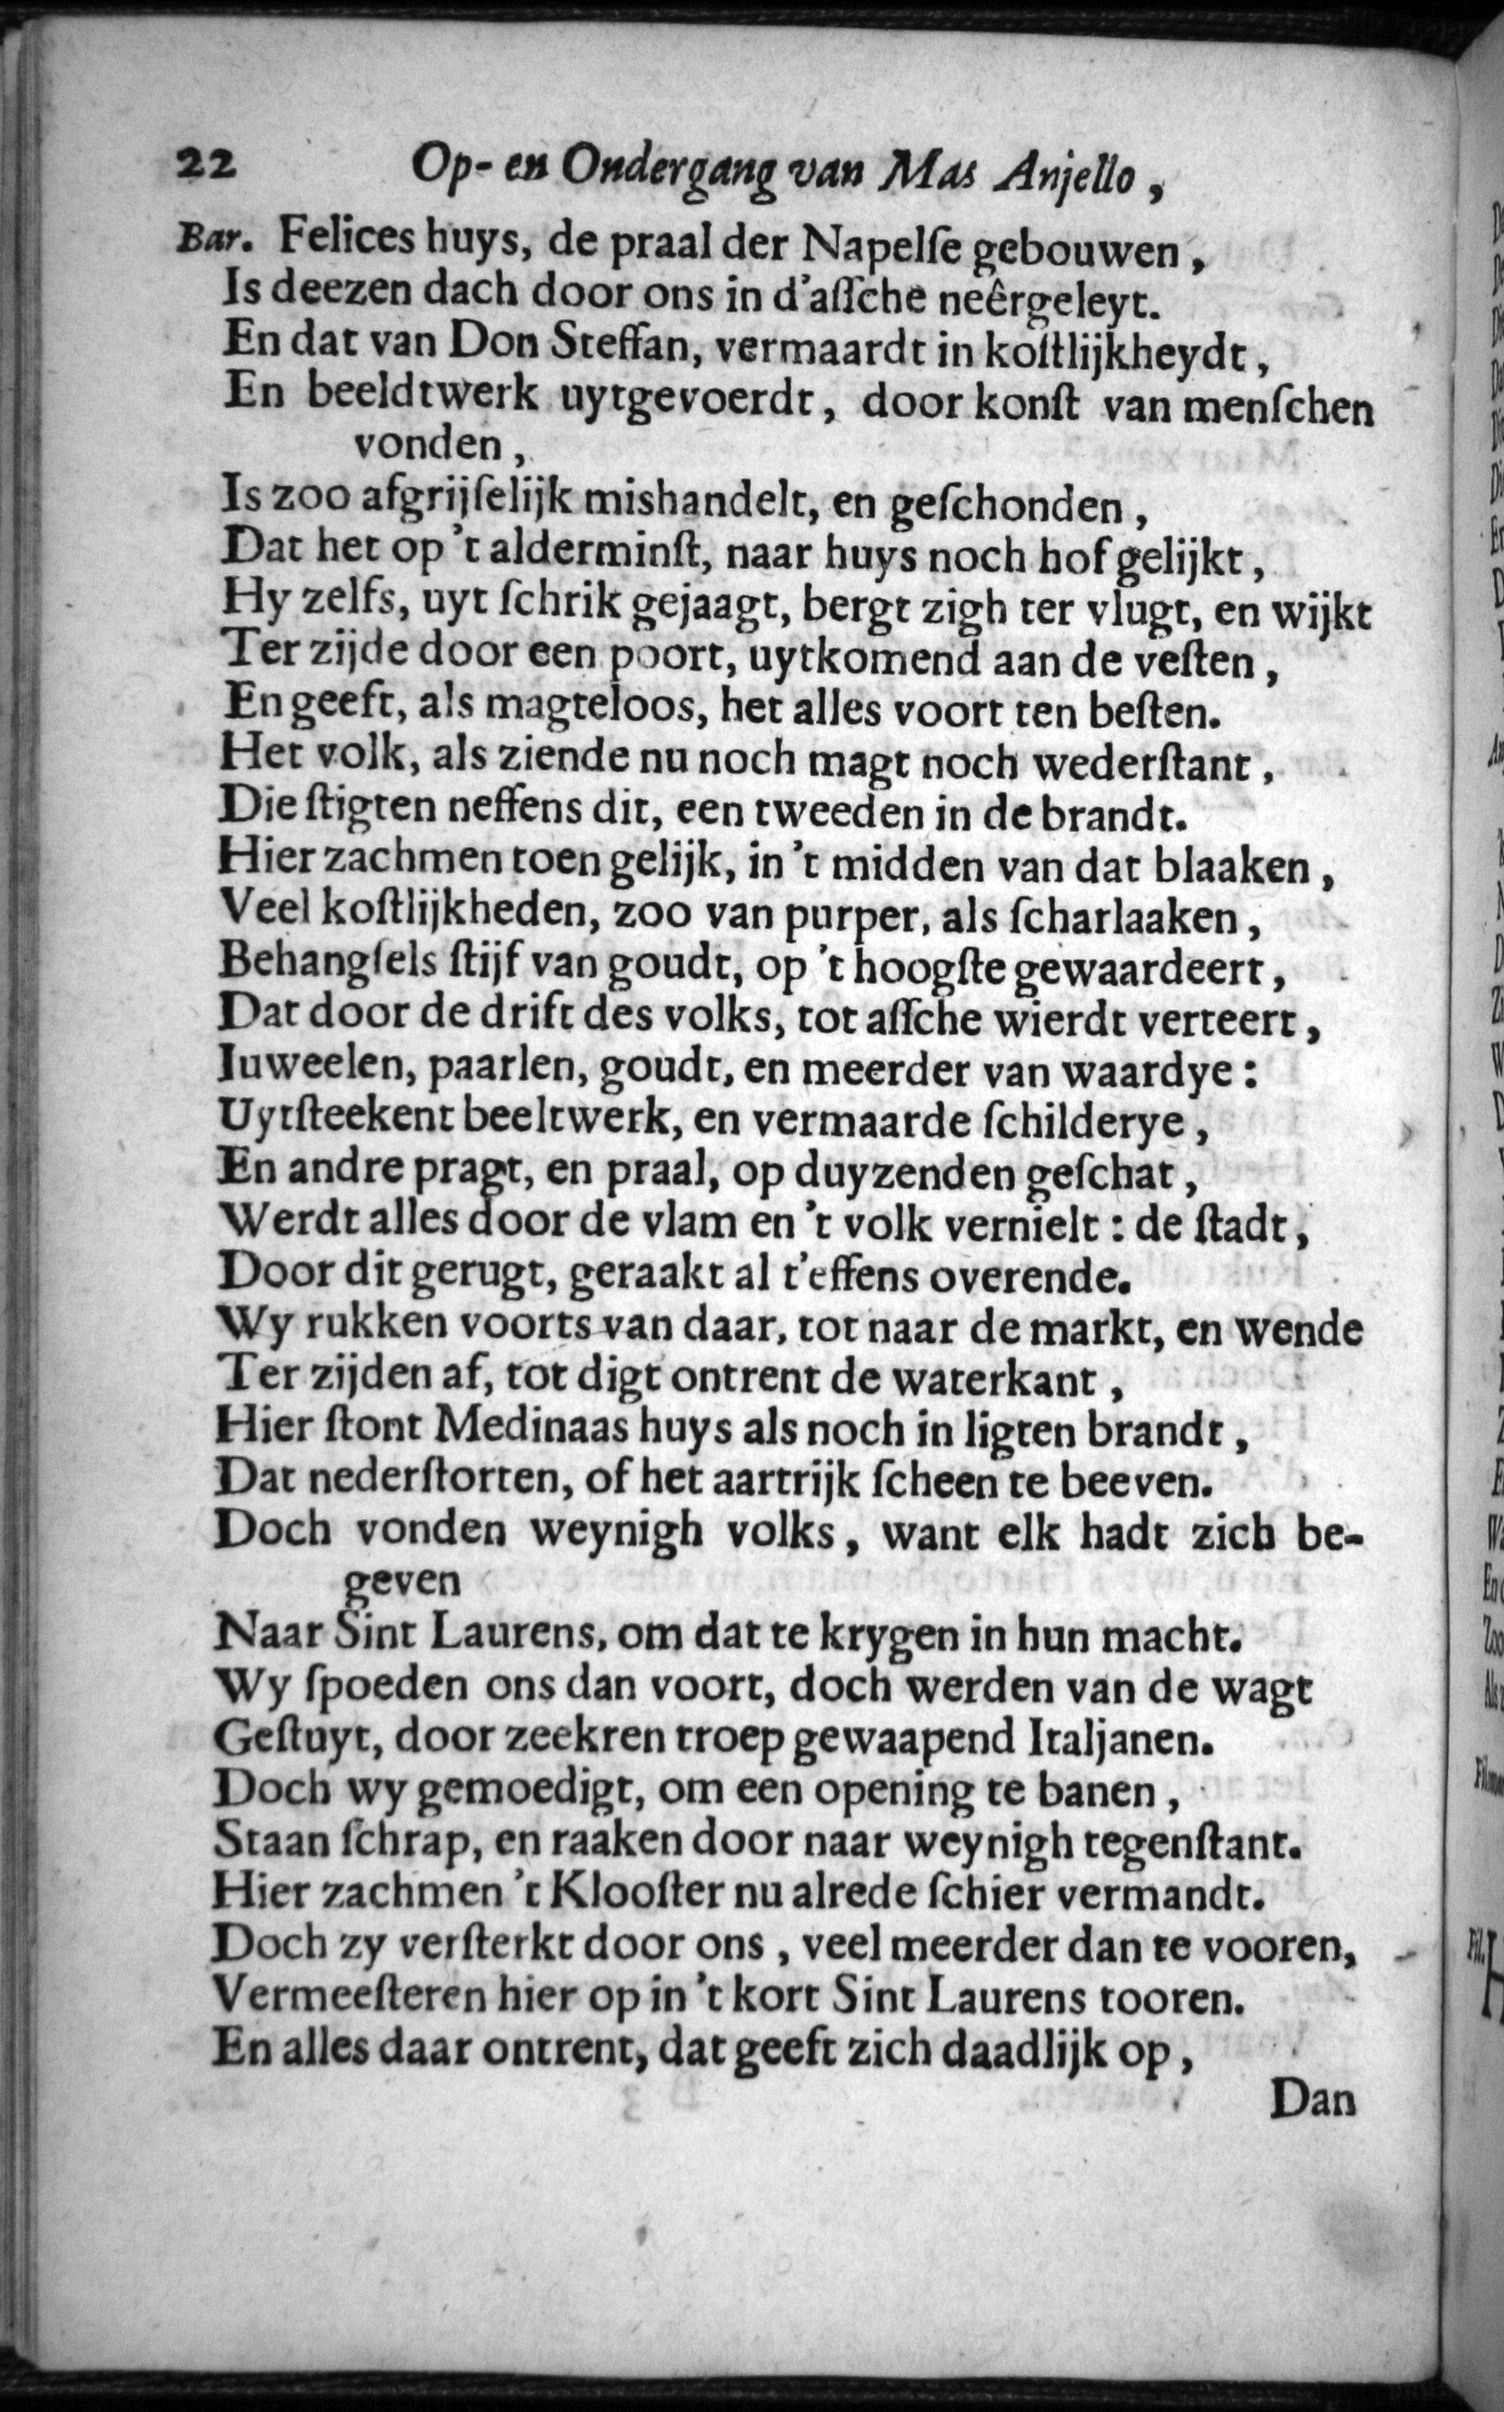 22 Op- en Ondergang van Mas Anjello,
Bar. Felices huys, de praal der Napelſe gebouwen,
Is deezen dach door ons in d'aſſche neêrgeleyt.
En dat van Don Steffan, vermaardt in koſtlijkheydt,
En beeldtwerk uytgevoerdt, door konſt van menſchen
vonden,
Is zoo afgrijſelijk mishandelt, en geſchonden,
Dat het op 't alderminſt, naar huys noch hof gelijkt,
Hy zelfs, uyt ſchrik gejaagt, bergt zigh ter vlugt, en wijkt
Ter zijde door een poort, uytkomend aan de veſten,
En geeft, als magteloos, het alles voort ten beſten.
Het volk, als ziende nu noch magt noch wederſtant,
Die ſtigten neffens dit, een tweeden in de brandt.
Hier zachmen toen gelijk, in 't midden van dat blaaken,
Veel koſtlijkheden, zoo van purper, als ſcharlaaken,
Behangſels ſtijf van goudt, op 't hoogſte gewaardeert,
Dat door de drift des volks, tot aſſche wierdt verteert,
Iuweelen, paarlen, goudt, en meerder van waardye:
Uytſteekent beeltwerk, en vermaarde ſchilderye,
En andre pragt, en praal, op duyzenden geſchat,
Werdt alles door de vlam en 't volk vernielt: de ſtadt,
Door dit gerugt, geraakt al t'effens overende.
Wy rukken voorts van daar, tot naar de markt, en wende
Ter zijden af, tot digt ontrent de waterkant,
Hier ſtont Medinaas huys als noch in ligten brandt,
Dat nederſtorten, of het aartrijk ſcheen te beeven.
Doch vonden weynigh volks, want elk hadt zich be-
geven
Naar Sint Laurens, om dat te krygen in hun macht.
Wy ſpoeden ons dan voort, doch werden van de wagt
Geſtuyt, door zeekren troep gewaapend Italjanen.
Doch wy gemoedigt, om een opening te banen,
Staan ſchrap, en raaken door naar weynigh tegenſtant.
Hier zachmen 't Klooſter nu alrede ſchier vermandt.
Doch zy verſterkt door ons, veel meerder dan te vooren,
Vermeeſteren hier op in 't kort Sint Laurens tooren.
En alles daar ontrent, dat geeft zich daadlijk op,
Dan